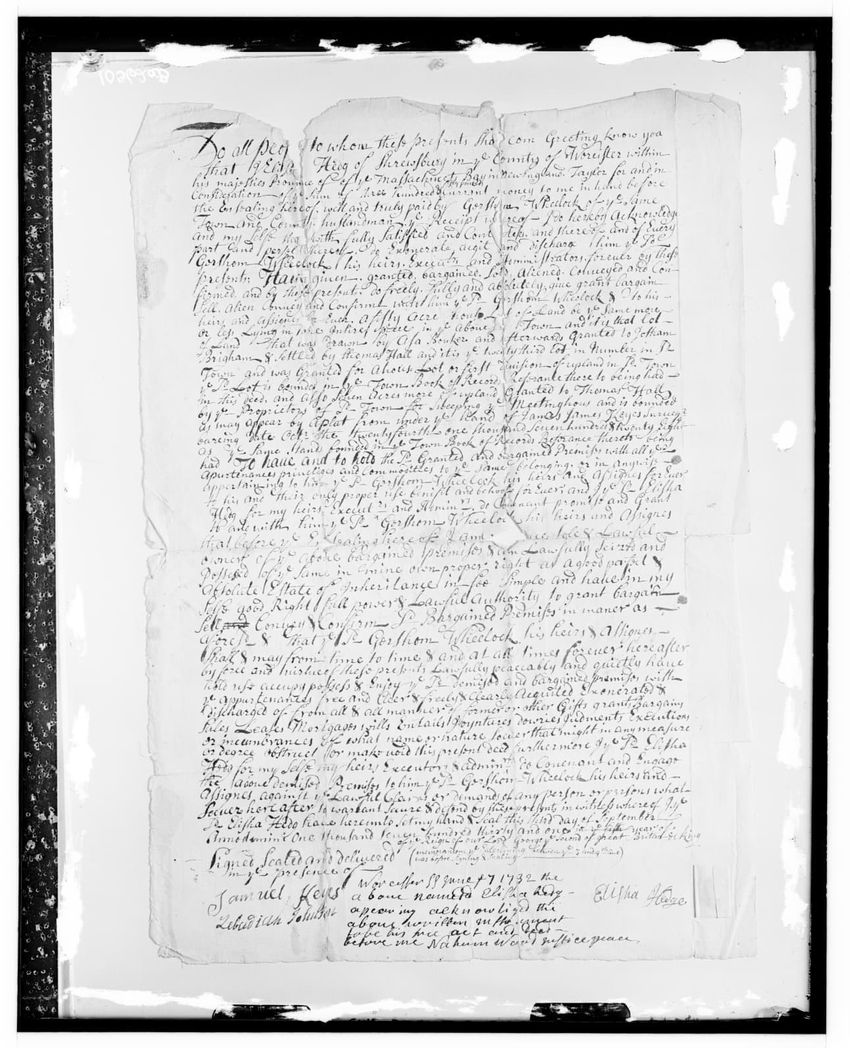 To all Peo to whom these presents Shal com Greeting know you
that I Elisha Hedg of Shrewsbury in ye County of Worcester within
his majesties Province of of ye Massachusets Bay in New England Taylor for and in
Consideration of ye Sum of three hundred Current money to me in hand before
the Ensealing hereof well and truly paid by Gorshom Wheelock of ye Same
Town and County husbandman ye Receipt whereof I do hereby Acknowledge
and my Self therewith fully Satisfied and Contented and thereof and of Every
part and persel thereof do Exonerate Acqit and Discharg him ye Sd
Gorshom Wheelock his heirs Executrs and Administrators forever by these
presents Have given, granted, bargained, Sold, Aliened, Conveyed and Con
firmed and by these presents do freely, fully and absolutely give grant bargain
Sell, Alien Convey and Confirm unto him ye Sd Gorshom Wheelock & to his
heirs and Assignes for Ever, A fifty Acre hous Lot of Land be ye Same more
or less Lying in the Intire Spece in ye Above Sd Town and it is that Lot
of Land that was Drawn by Asa Bouker and afterwards Granted to Jotham
Brigham & Settled by Thomas Hall and it is ye twenty third lot in Number in Sd
Town and was Granted for A hous Lot or first Division of upland in Sd Town
ye Sd Lot is bounded in ye Town Book of Record Referance there to being had
in this deed, and Also Seven Acres more of upland Granted to Thomas Hall
by ye Proprietors of Sd Town for Meetinghous and is bounded
as may Appear by A plat from under ye hand of James James Keyes Survey
bareing Date Octr the twenty fourth one thousand Seven hundred & twenty Eight
as ye Same Stand bounded in ye Town Book of Records Referance thereto being
had To have and to hold the Sd Granted and bargained Premises with all ye
Apurtenances priviliges and Commodities to ye Same belonging or in anywise
Appertaining to him ye Sd Gorshom Wheelock his heirs and Assignes for Ever
to his and their only proper use benefit and behoof for Ever and I ye Sd Elisha
Hedg for my heirs Executrs and Adminrs do Covenant promise and Grant
to and with him ye Sd Gorshom Wheelock his heirs and Assignes
that before ye Ensealing hereof I am ye true Sole & Lawful
owner of ye above bargained premises & am Lawfully Seized and
Possesd of ye Same in mine own proper right as a good perfect &
Absolute Estate of Inheritance in fee Simple and have in my
Self good Right full power & Lawful Authority to grant bargain
Sell and Convey & Confirm Sd Bargained Premises in maner as
afore Sd & that ye Sd Gorshom Wheelock his heirs & Assignes
Shall & may from time to time & and at all times forever hereafter
by force and virtue of these presents Lawfully peaceably and quietly have
hold use occupy possess & Enjoy ye Sd Demised and bargained premises with
ye appurtenances free and Clear & freely & clearly Acquited Exonerated &
Discharged of from all & all manner of former or other Gifts grants Bargains
Sales Leases Mortgages wills Entails Joyntures Dowries Judments Executions
or incumbrances of what name or nature soever that might in any measure
or degree obstruct or make void this present deed furthermore I ye Sd Elisha
Hedg for my Self my heirs Executors & adminrs Do Covenant and Engage
the above demised Premises to him ye Sd Gorshom Wheelock his heirs and
Assignes against ye Lawful Claims or demands of any person or persons what
Soever hereafter to warrant Secure & defend by these presents in witness whereof I ye
Sd Elisha Hedg have hereunto set my hand & Seal this third day of September
Annodomini One thousand seven hundred thirty and one in ye fifth year of
ye Reign of our Lord George ye second of great Britain &c King
Signed Sealed and Delivered
in ye presence of
Samuel Keys
Zebadiah Johnson
Worcester SS June ye 7 1732 the
above named Elisha Hedg
apearing acknowliged the
above writtin instrument
to be his free act and deed
before me Nahum Ward justice peace
Elisha Hedge